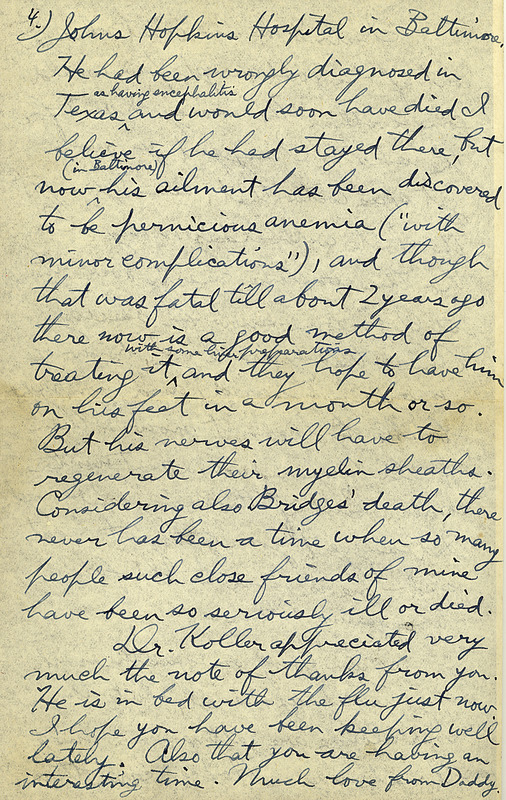 4.) Johns Hopkins Hospital in Baltimore.
He had been wrongly diagnosed in
as having encephalitis
Texas, and would soon have died I
believe if he had stayed there, but
(in Baltimore)
now his ailment has been discovered
to be pernicious anemia ("with
minor complications"), and though
that was fatal till about 2 years ago
there now is a good method of
with some liver preparations
treating it, and they hope to have him
on his feet in a month or so.
But his nerves will have to
regenerate their myelin sheaths.
Considering also Bridges' death, there
never has been a time when so many
people such close friends of mine
have been so seriously ill or died.
Dr. Koller appreciated very
much the note of thanks from you.
He is in bed with the flu just now.
I hope you have been keeping well
lately. Also that you are having an
interesting time. Much love from Daddy.